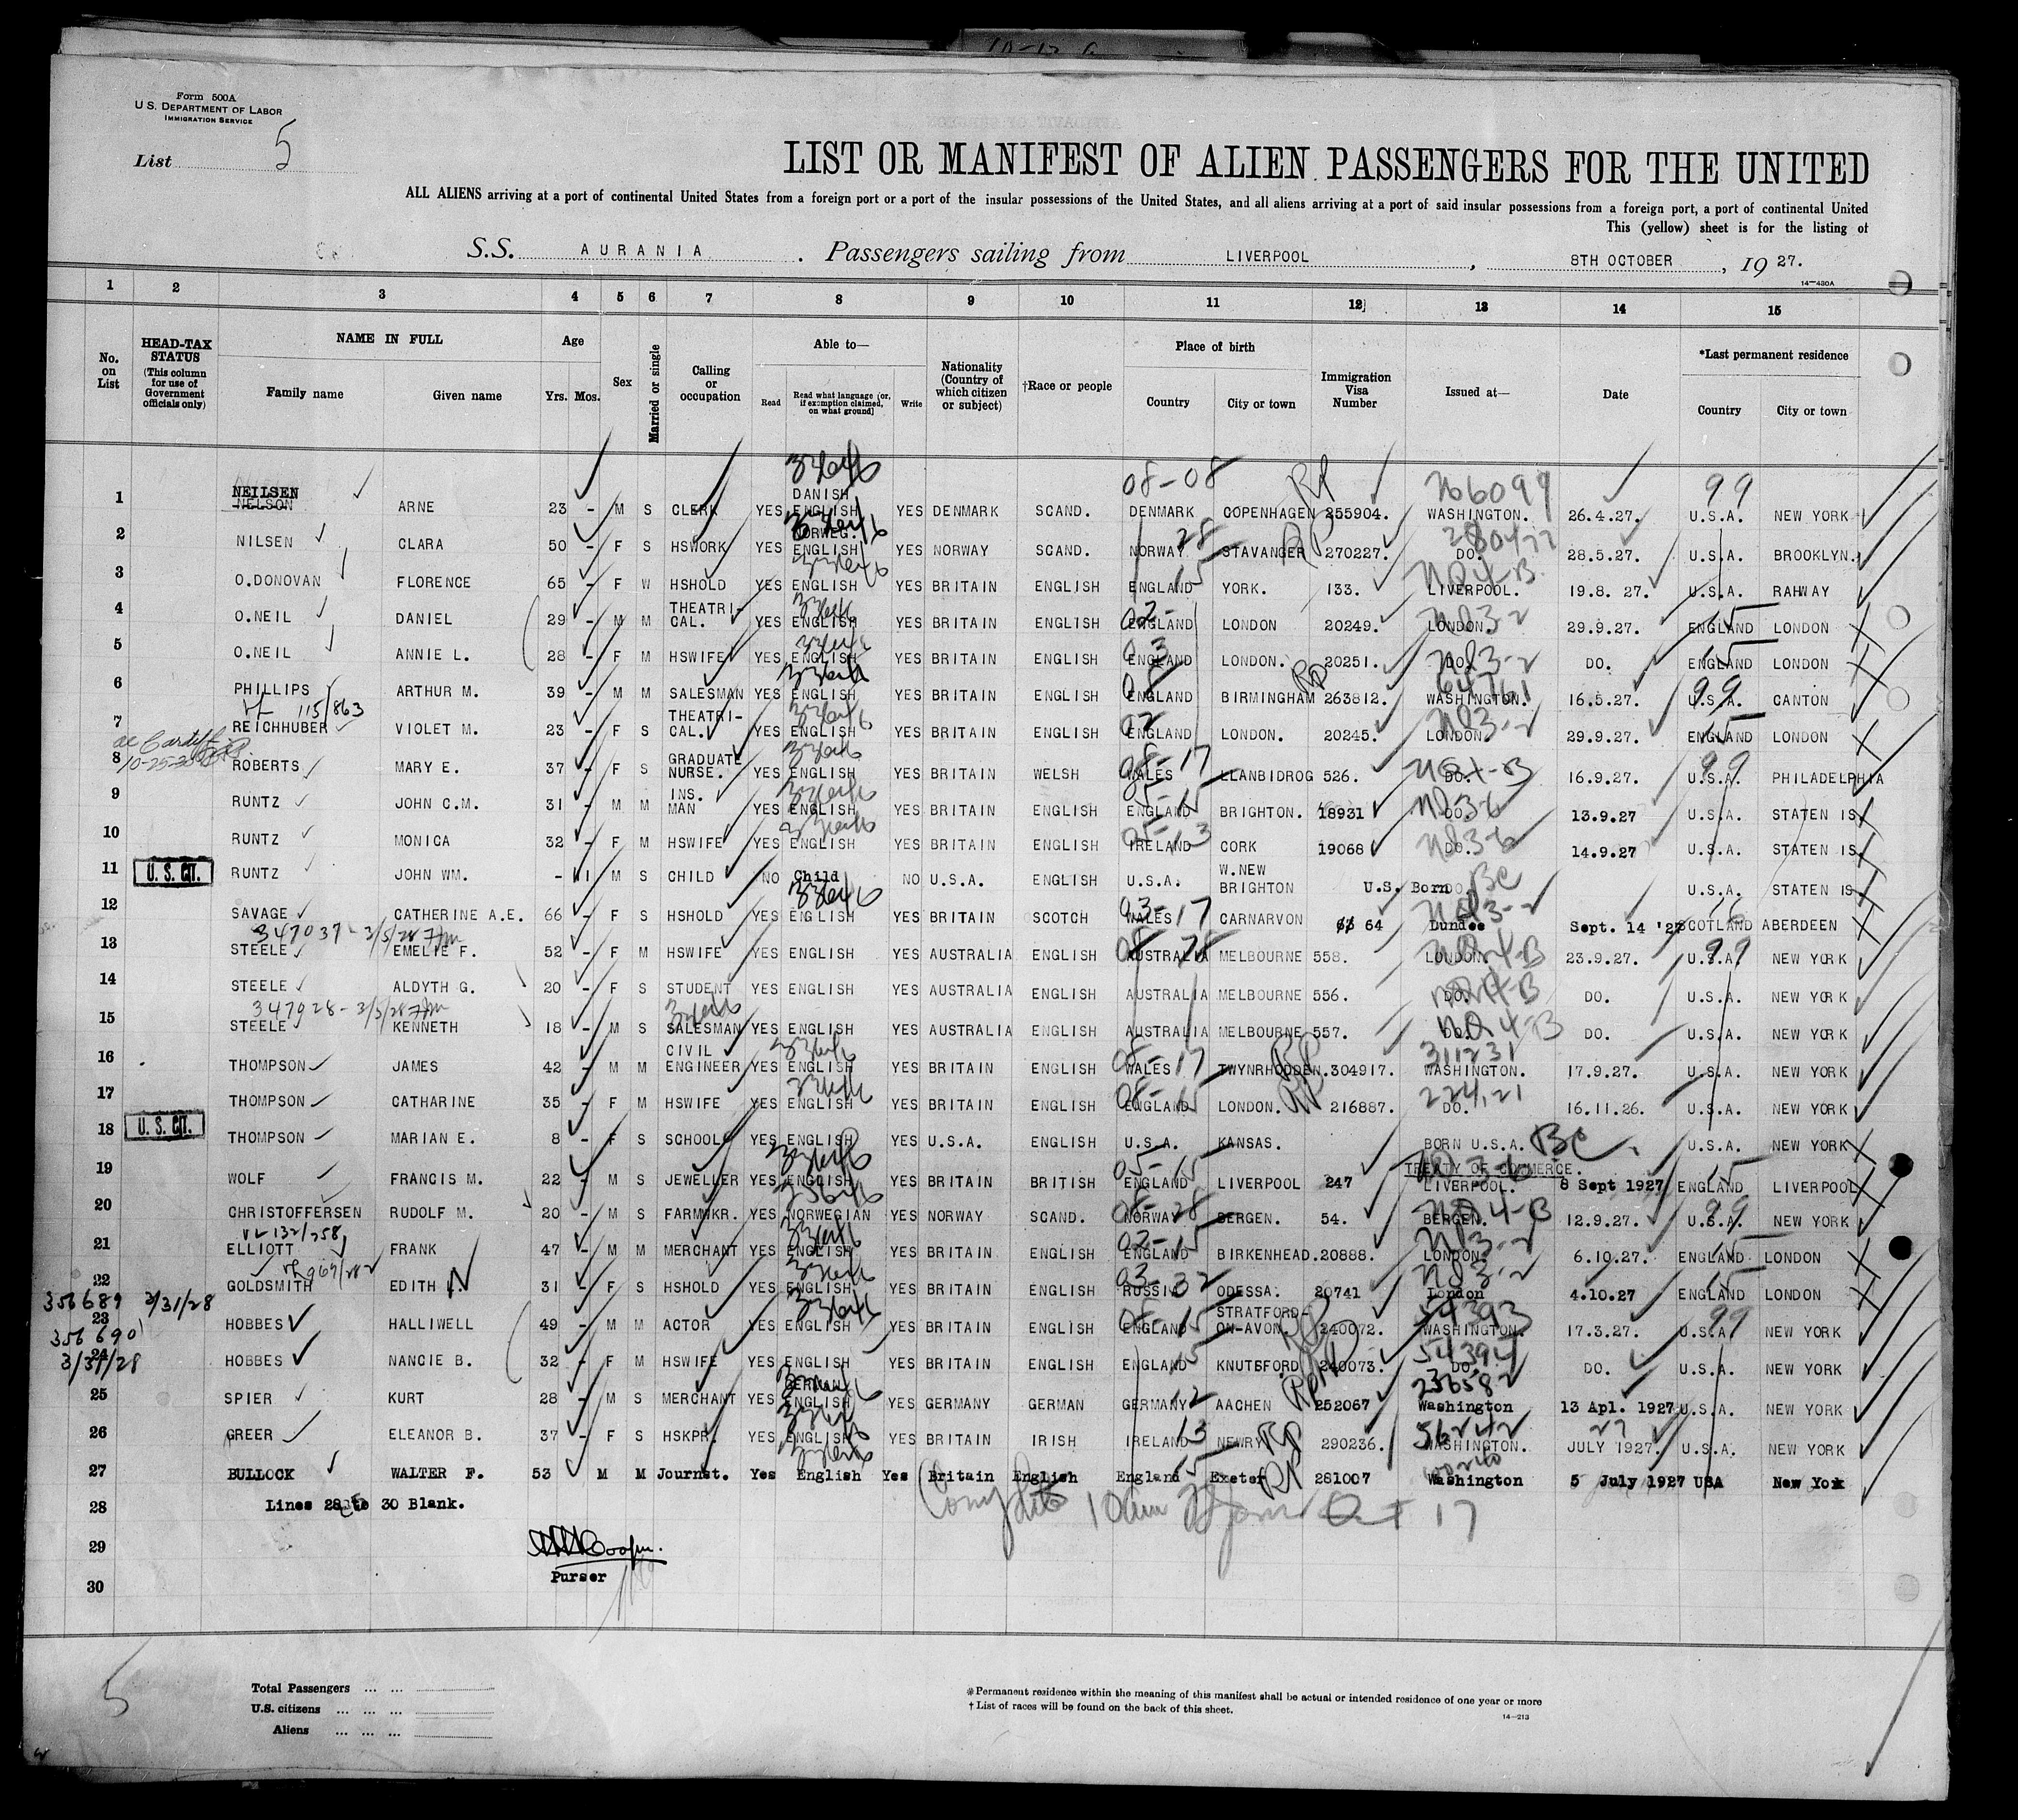 Form 500A
U.S. DEPARTMENT OF LABOR
IMMIGRATION SERVICE
List 5
LIST OR MANIFEST OF ALIEN PASSENGERS FOR THE UNITED
ALL ALIENS arriving at a port of continental United States from a foreign port or a port of the insular possessions of the United States, and all aliens arriving at a port of said insular possessions from a foreign port, a port of continental United
This (yellow) sheet is for the listing of
S.S. AURANIA. Passengers sailing from LIVERPOOL, 8TH OCTOBER, 19 27.
14—430A
1 2 3 4 5 6 7 8 9 10 11 12 13 14 15
No. on List
HEAD-TAX STATUS (This column for use of Government officials only)
NAME IN FULL Family name Given name
Age Yrs. Mos.
Sex
Married or single
Calling or occupation
Able to— Read Read what language (or, if exemption claimed, on what ground) Write
Nationality (Country of which citizen or subject)
†Race or people
Place of birth Country City or town
Immigration Visa Number
Issued at—
Date
*Last permanent residence Country City or town
1 NEILSEN NELSON ARNE 23 - M S CLERK YES DANISH ENGLISH YES DENMARK SCAND. 08-08 DENMARK COPENHAGEN 255904. WASHINGTON. 26.4.27. 99 U.S.A. NEW YORK
2 NILSEN CLARA 50 - F S HSWORK YES NORWEG. ENGLISH YES NORWAY SCAND. NORWAY 28 STAVANGER 270227. DO. 28.5.27. U.S.A. BROOKLYN.
3 O.DONOVAN FLORENCE 65 - F W HSHOLD YES ENGLISH YES BRITAIN ENGLISH ENGLAND 15 YORK. 133. LIVERPOOL. 19.8. 27. U.S.A. RAHWAY
4 O.NEIL DANIEL 29 - M M THEATRI-CAL. YES ENGLISH YES BRITAIN ENGLISH ENGLAND LONDON 20249. LONDON. 29.9.27. ENGLAND LONDON
5 O.NEIL ANNIE L. 28 - F M HSWIFE YES ENGLISH YES BRITAIN ENGLISH ENGLAND LONDON. 20251. DO. DO. ENGLAND LONDON
6 PHILLIPS ARTHUR M. 39 - M M SALESMAN YES ENGLISH YES BRITAIN ENGLISH ENGLAND BIRMINGHAM 263812. WASHINGTON. 16.5.27. 99 U.S.A. CANTON
115/863
7 REICHHUBER VIOLET M. 23 - F S THEATRI-CAL. YES ENGLISH YES BRITAIN ENGLISH ENGLAND LONDON. 20245. LONDON. 29.9.27. ENGLAND LONDON
8 ROBERTS MARY E. 37 - F S GRADUATE NURSE. YES ENGLISH YES BRITAIN WELSH WALES 17 LLANBIDROG 526. DO. 16.9.27. U.S.A. PHILADELPHIA
9 RUNTZ JOHN C.M. 31 - M M INS. MAN YES ENGLISH YES BRITAIN ENGLISH ENGLAND BRIGHTON. 18931 DO. 13.9.27 U.S.A. STATEN IS
10 RUNTZ MONICA 32 - F M HSWIFE YES ENGLISH YES BRITAIN ENGLISH IRELAND CORK 19068 DO. 14.9.27 U.S.A. STATEN IS.
11 U.S. CIT. RUNTZ JOHN WM. - 11 M S CHILD NO Child NO U.S.A. ENGLISH U.S.A. W.NEW BRIGHTON U.S. Born DO. U.S.A. STATEN IS
12 SAVAGE CATHERINE A.E. 66 - F S HSHOLD YES ENGLISH YES BRITAIN SCOTCH WALES 17 CARNARVON 64 Dundee Sept. 14 '27 SCOTLAND ABERDEEN
347037- 3/5/28
13 STEELE EMELIE F. 52 - F M HSWIFE YES ENGLISH YES AUSTRALIA ENGLISH AUSTRALIA MELBOURNE 558. LONDON. 23.9.27. U.S.A. NEW YORK
14 STEELE ALDYTH G. 20 - F S STUDENT YES ENGLISH YES AUSTRALIA ENGLISH AUSTRALIA MELBOURNE 556. DO. DO. U.S.A. NEW YORK
347028- 3/5/28
15 STEELE KENNETH 18 - M S SALESMAN YES ENGLISH YES AUSTRALIA ENGLISH AUSTRALIA MELBOURNE 557. DO. DO. U.S.A. NEW YORK
16 THOMPSON JAMES 42 - M M CIVIL ENGINEER YES ENGLISH YES BRITAIN ENGLISH WALES 17 TWYNRHODDEN. 304917. 311231 WASHINGTON. 17.9.27. U.S.A. NEW YORK
17 THOMPSON CATHARINE 35 - F M HSWIFE YES ENGLISH YES BRITAIN ENGLISH ENGLAND LONDON. 216887. DO. 16.11.26. U.S.A. NEW YORK
18 U.S. CIT. THOMPSON MARIAN E. 8 - F S SCHOOL YES ENGLISH YES U.S.A. ENGLISH U.S.A. KANSAS. BORN U.S.A. U.S.A. NEW YORK
TREATY OF COMMERCE.
19 WOLF FRANCIS M. 22 - M S JEWELLER YES ENGLISH YES BRITAIN BRITISH ENGLAND LIVERPOOL 247 LIVERPOOL. 8 Sept 1927 ENGLAND LIVERPOOL
20 CHRISTOFFERSEN RUDOLF M. 20 - M S FARMWKR. YES NORWEGIAN YES NORWAY SCAND. NORWAY 28 BERGEN. 54. BERGEN. 12.9.27. U.S.A. NEW YORK
132/258
21 ELLIOTT FRANK 47 - M M MERCHANT YES ENGLISH YES BRITAIN ENGLISH ENGLAND BIRKENHEAD. 20888. LONDON. 6.10.27. ENGLAND LONDON
22 GOLDSMITH EDITH 31 - F S HSHOLD YES ENGLISH YES BRITAIN ENGLISH RUSSIA 32 ODESSA. 20741 London 4.10.27 ENGLAND LONDON
356689 3/31/28
23 HOBBES HALLIWELL 49 - M M ACTOR YES ENGLISH YES BRITAIN ENGLISH ENGLAND 15 STRATFORD-ON-AVON. 240072. 54393 WASHINGTON. 17.3.27. 99 U.S.A. NEW YORK
356690
3/31/28
24 HOBBES NANCIE B. 32 - F M HSWIFE YES ENGLISH YES BRITAIN ENGLISH ENGLAND 15 KNUTSFORD 240073. 54394 DO. DO. U.S.A. NEW YORK
25 SPIER KURT 28 - M S MERCHANT YES GERMAN ENGLISH YES GERMANY GERMAN GERMANY 12 AACHEN 252067 Washington 13 Apl. 1927 U.S.A. NEW YORK
26 GREER ELEANOR B. 37 - F S HSKPR. YES ENGLISH YES BRITAIN IRISH IRELAND 13 NEWRY 290236. WASHINGTON. 27 JULY 1927. U.S.A. NEW YORK
27 BULLOCK WALTER F. 53 M M Journst. Yes English Yes Britain English England 15 Exeter 281007 Washington 5 July 1927 USA New York
28 Lines 28 to 30 Blank.
10am Oct 17
29
Purser
30
5
Total Passengers ... ...
U.S. citizens ... ... ...
Aliens ... ... ...
*Permanent residence within the meaning of this manifest shall be actual or intended residence of one year or more
†List of races will be found on the back of this sheet.
14—213